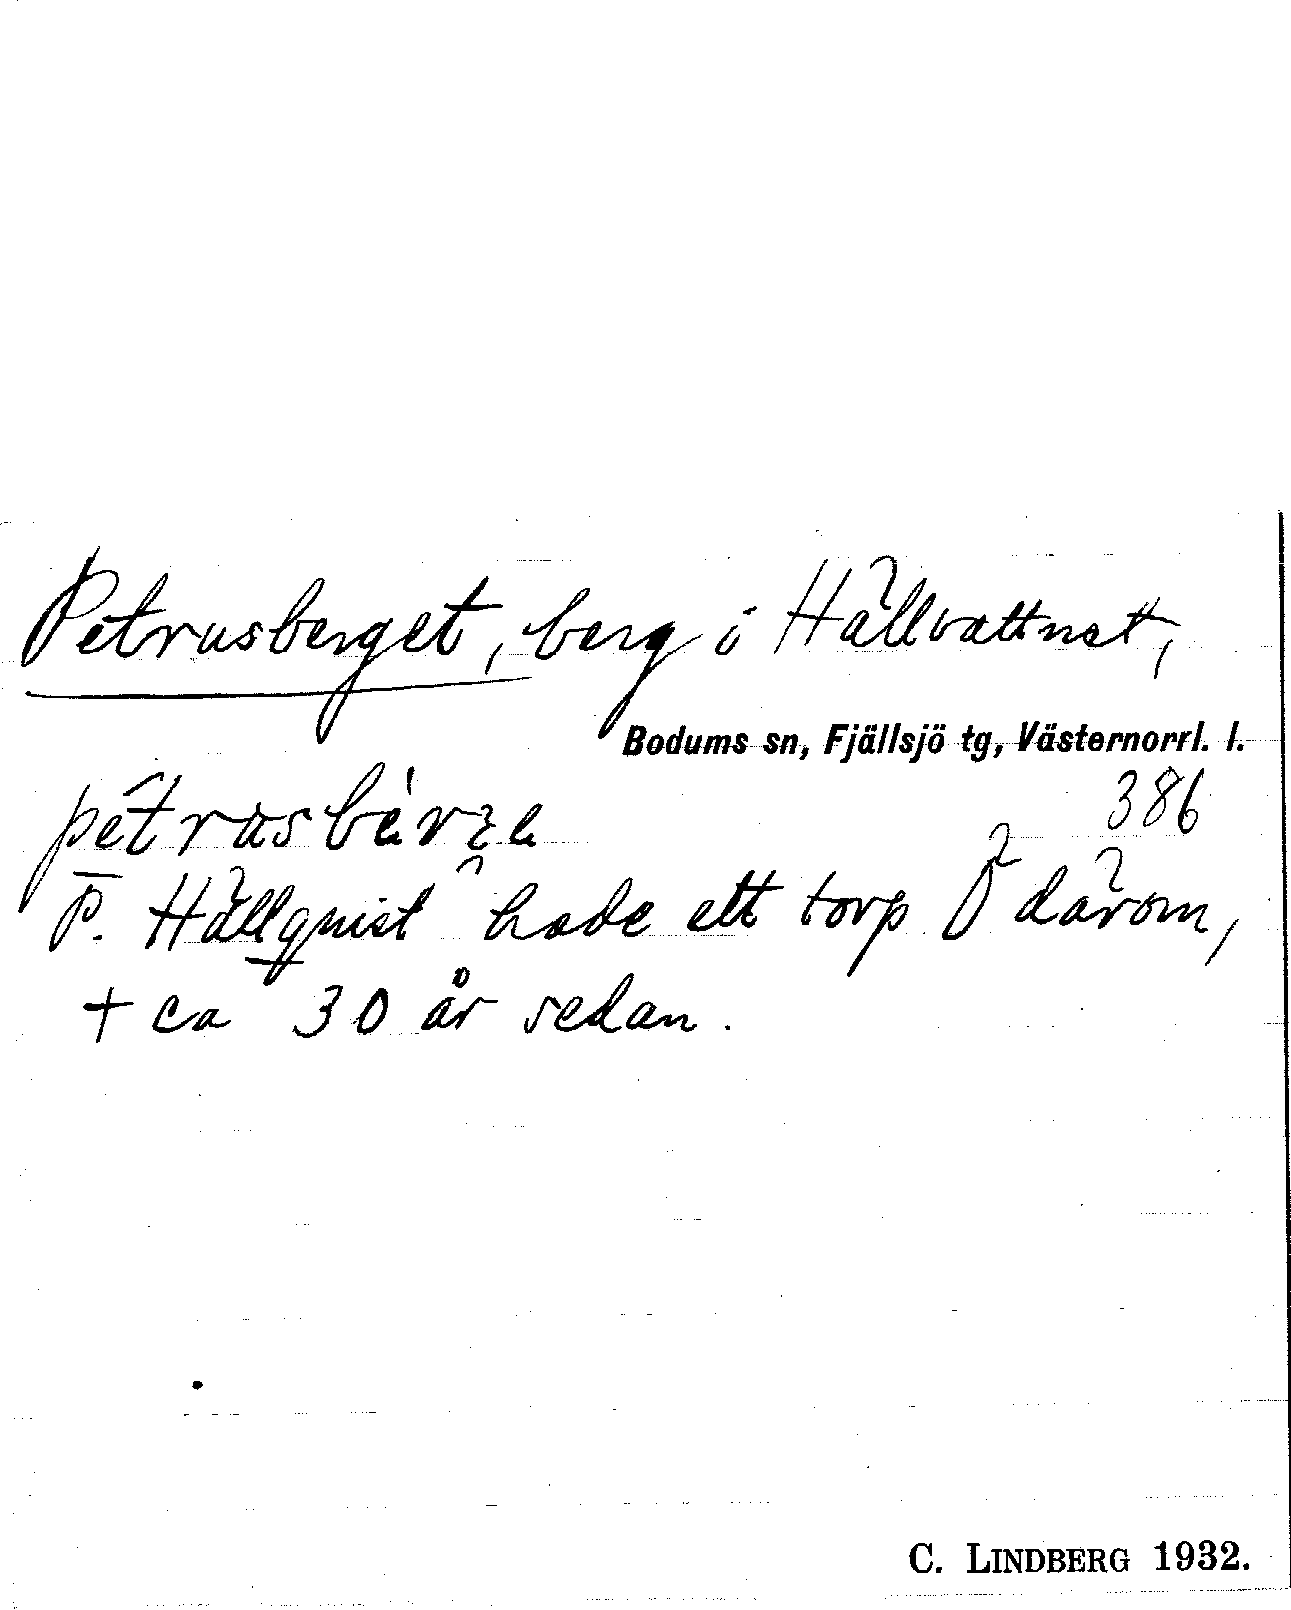 Petrusberget, berg i Hällvattnet,
Bodums sn, Fjällsjö tg, Västernorrl. l.
386
P. Hällqvist hade ett torp Ö därom,
+ ca 30 år sedan.
C. LINDBERG 1932.